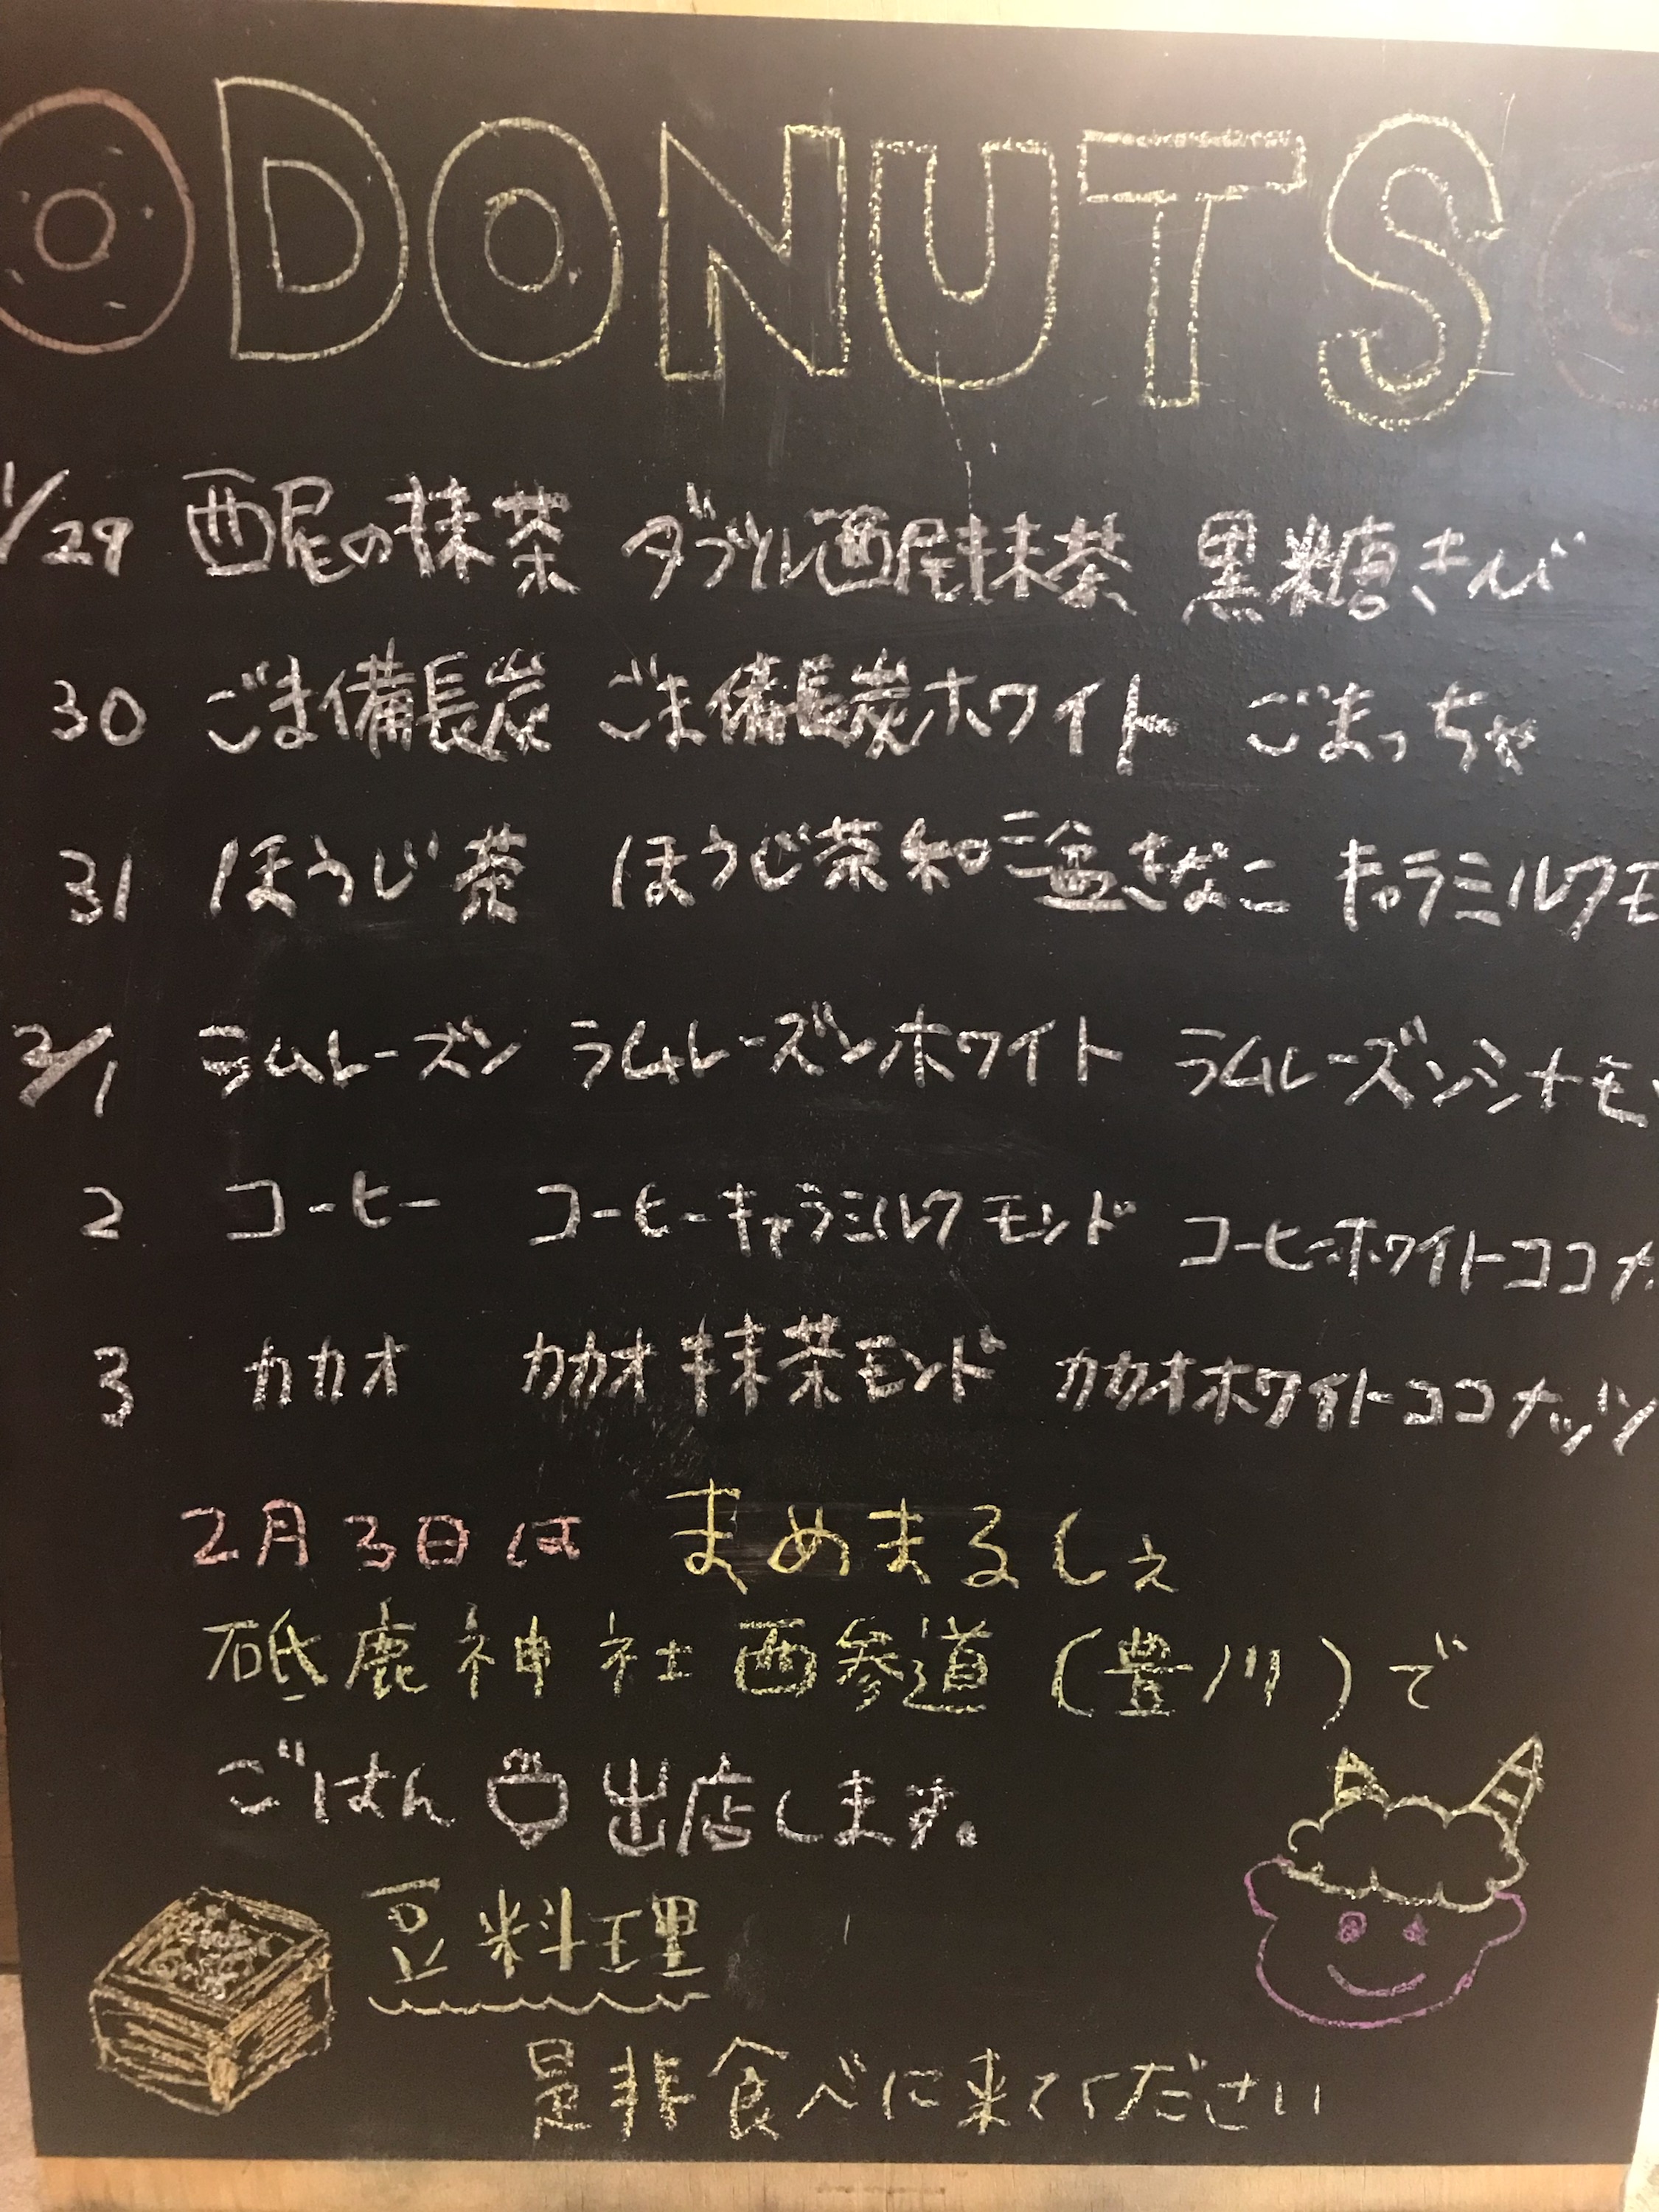 DONUTS
1/29 西尾の抹茶 ダブル西尾抹茶 黒糖きび
30 ごま備長炭 ごま備長炭ホワイト ごまっちゃ
31 ほうじ茶 ほうじ茶和三盆きなこ キャラミルクモ
2/1 ラムレーズン ラムレーズンホワイト ラムレーズンシナモ
2 コーヒー コーヒーキャラミルクモンド コーヒーホワイトココナ
3 カカオ カカオ抹茶モンド カカオホワイトココナッツ
2月3日は まめまるしぇ
砥鹿神社西参道(豊川)で
ごはん 出店します。
豆料理
是非食べに来てください